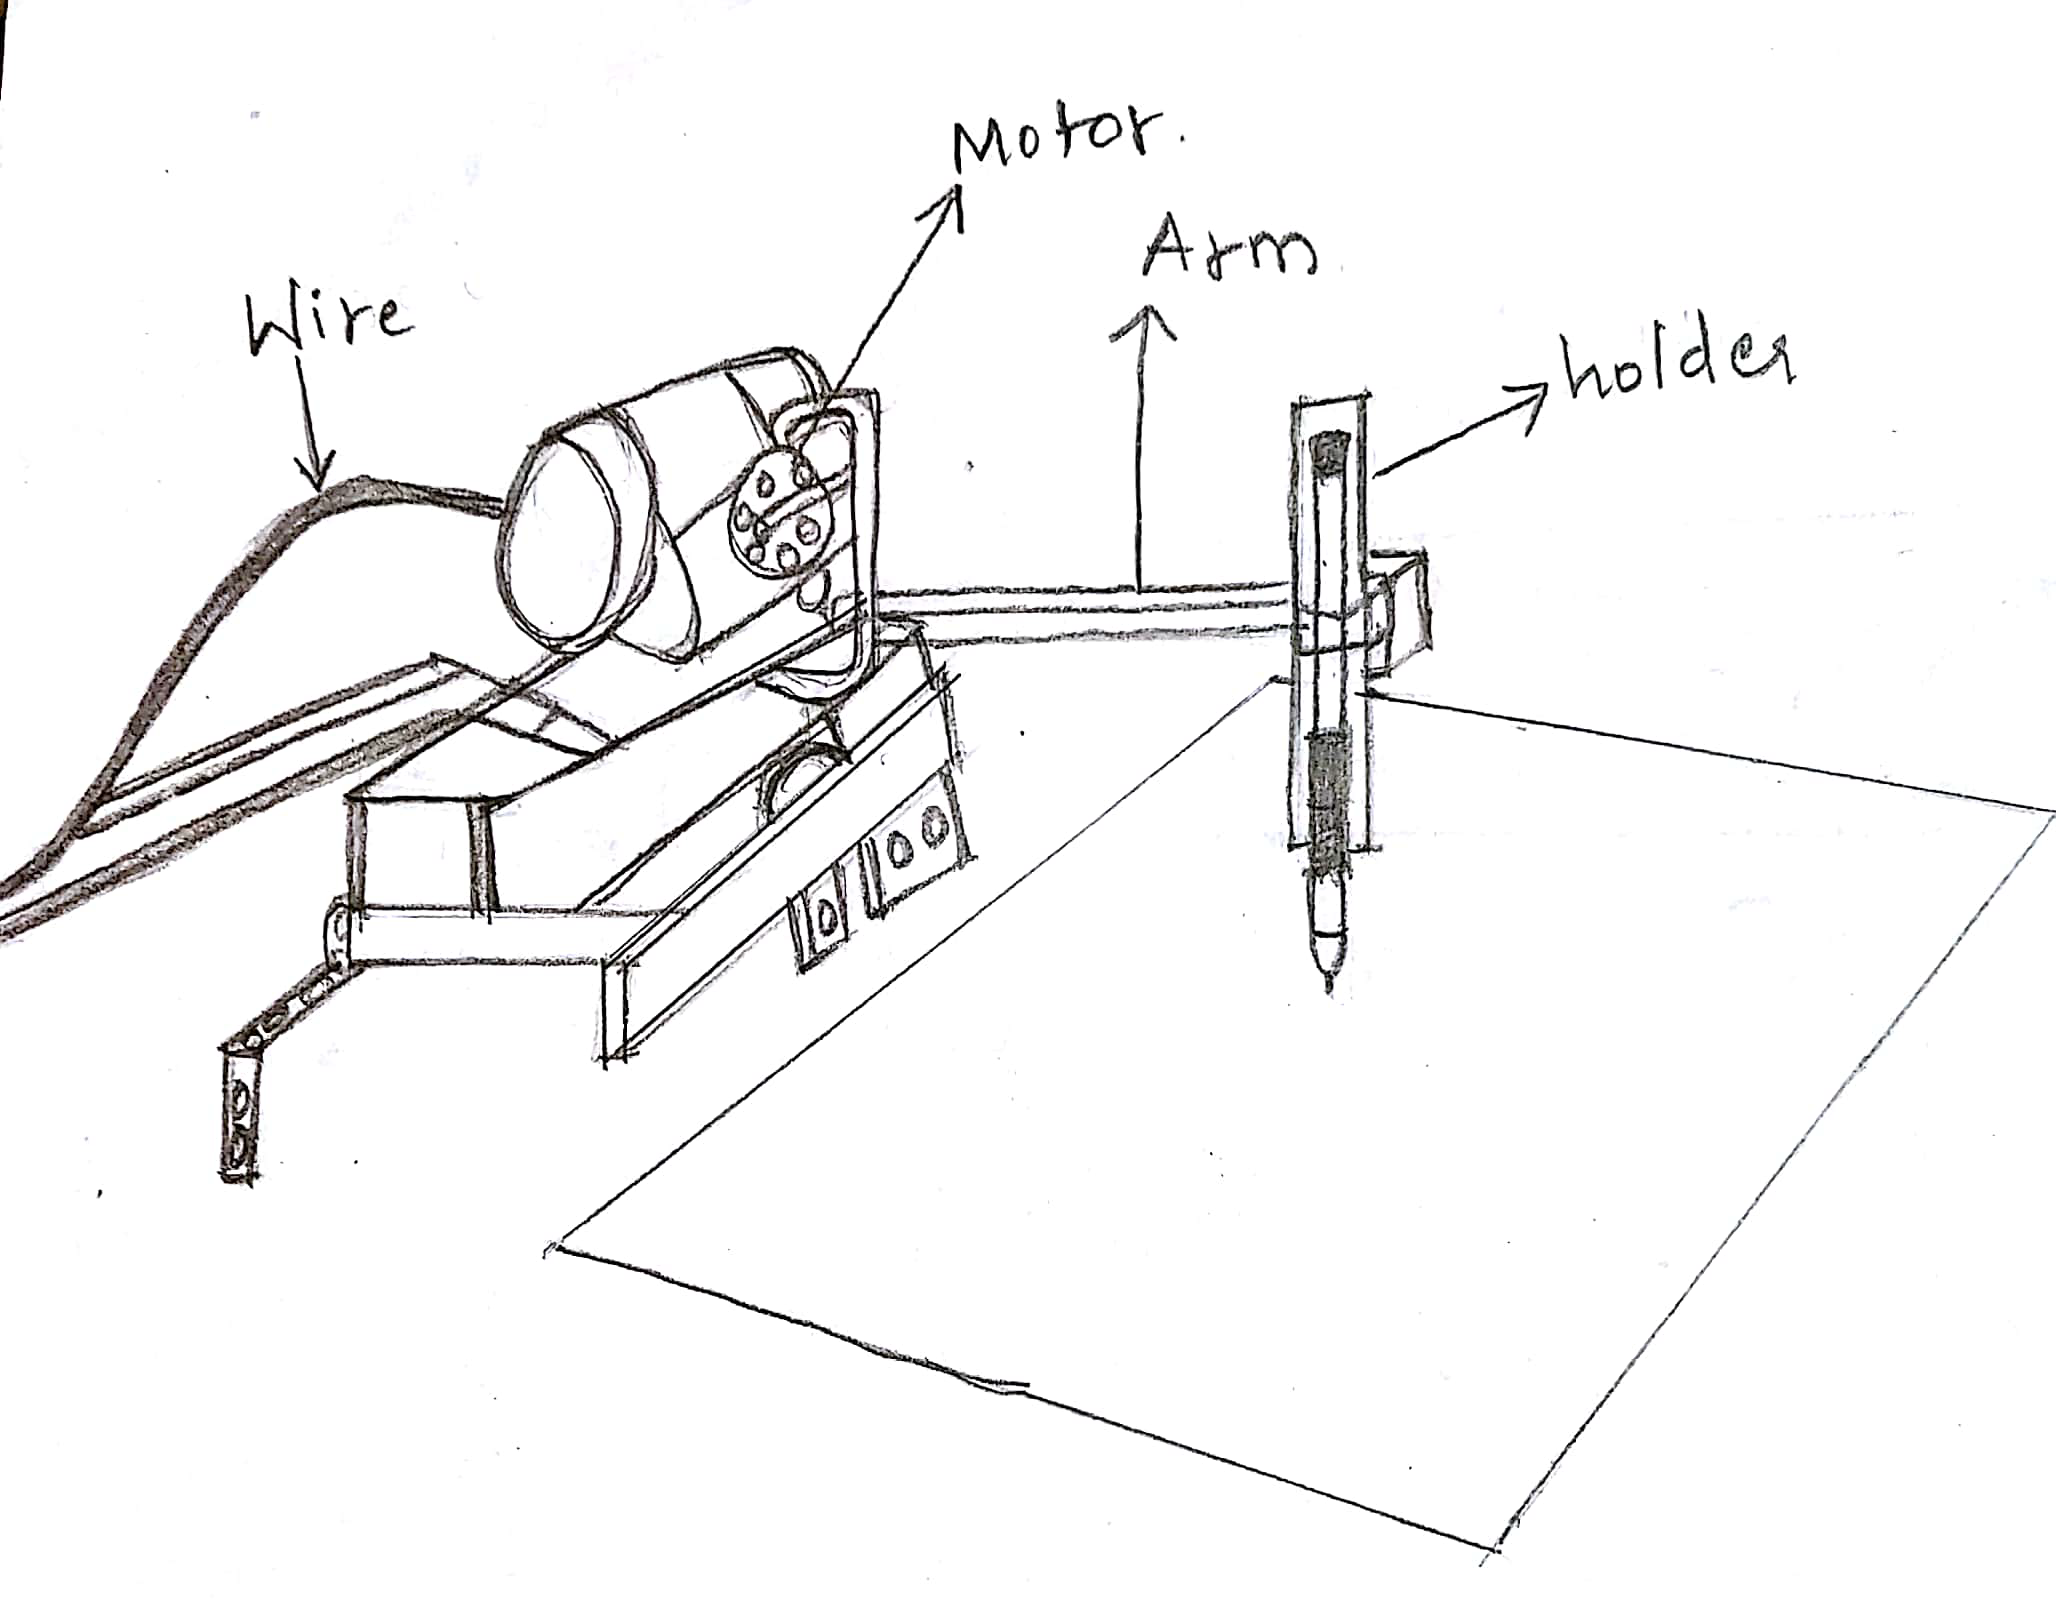 Motor.
Arm
Wire
holder